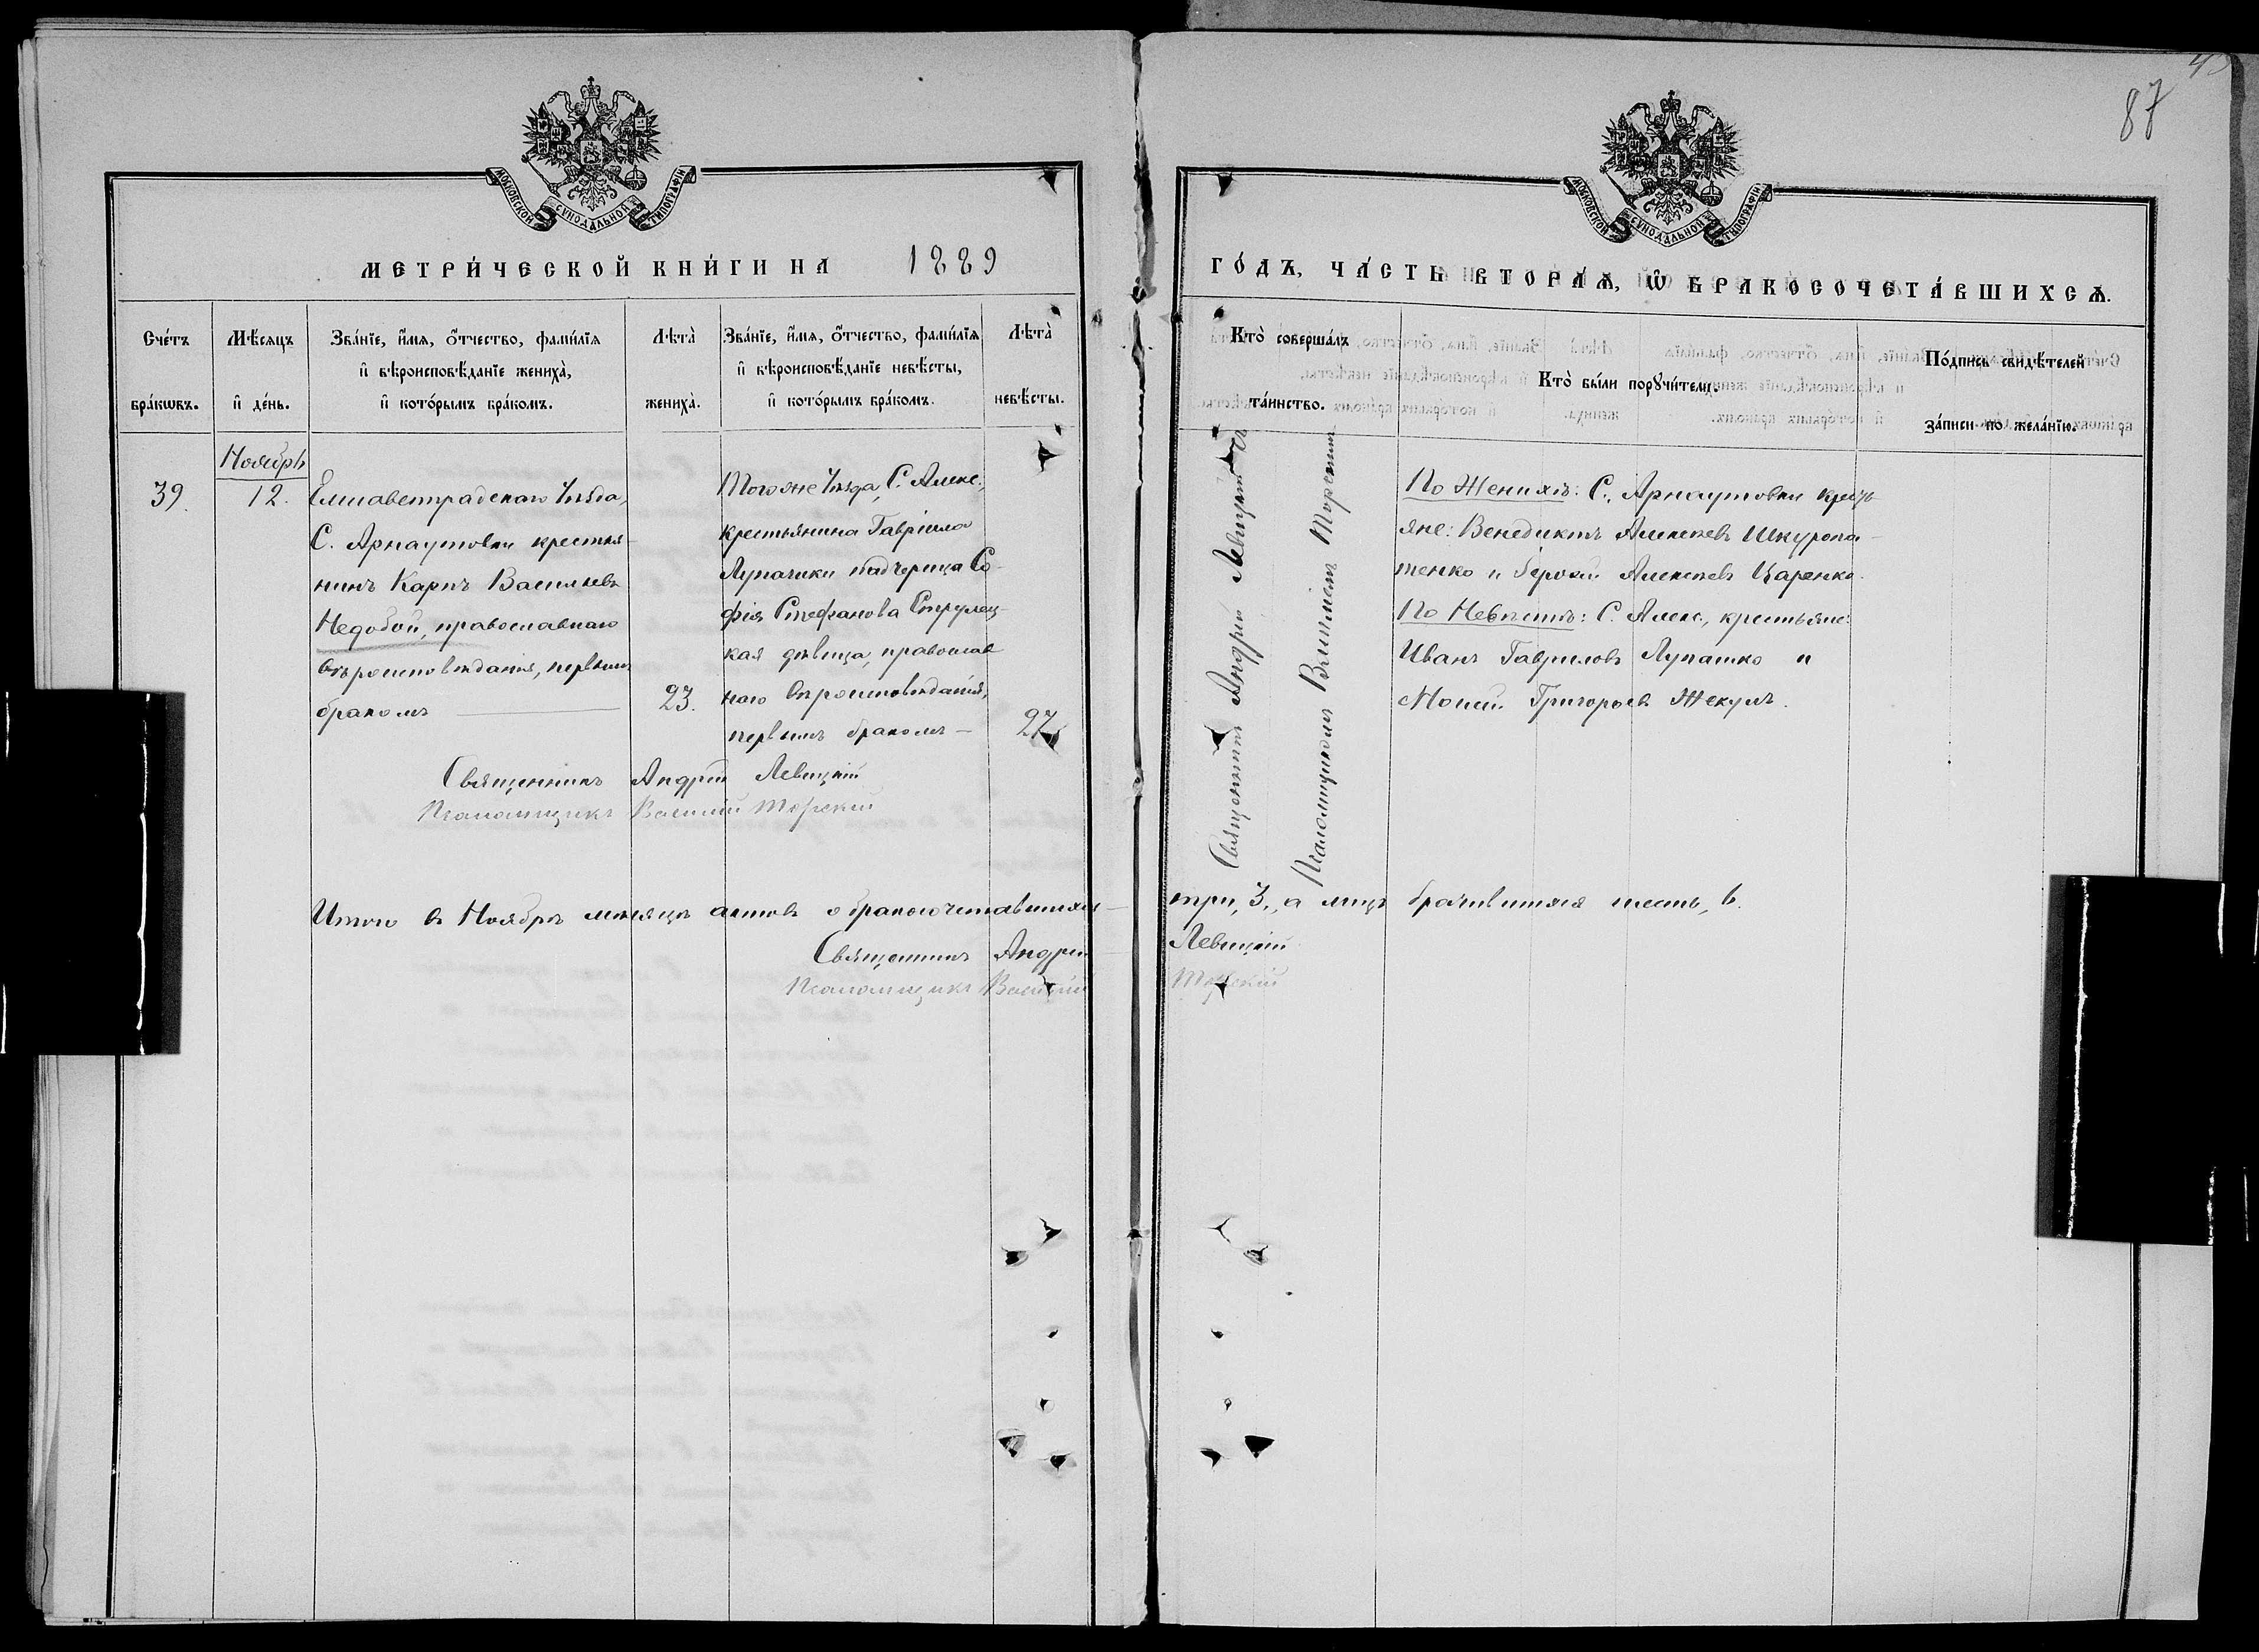 87
МОСКОВСКОЙ СѴНОДАЛЬНОЙ ТИПОГРАФІИ
МОСКОВСКОЙ СѴНОДАЛЬНОЙ ТИПОГРАФІИ
МЕТРИ́ЧЕСКОЙ КНИ́ГИ НА 1889
ГО́ДЪ, ЧА́СТЬ ВТОРА́Ѧ, Ѡ҆ БРАКОСОЧЕТА́ВШИХСѦ.
Сче́тъ
бра́кѡвъ.
Мѣ́сяцъ
и҆ де́нь.
Зва́нїе, и҆́мя, ѻ҆́тчество, фами́лїя
и҆ вѣроисповѣ́данїе жениха̀,
и҆ кото́рымъ бра́комъ.
Лѣта̀
жениха̀.
Зва́нїе, и҆́мя, ѻ҆́тчество, фами́лїя
и҆ вѣроисповѣ́данїе невѣ́сты,
и҆ кото́рымъ бра́комъ.
Лѣта̀
невѣ́сты.
Кто̀ соверша́лъ
та́инство.
Кто̀ бы́ли порꙋчи́тели.
По́дпись свидѣ́телей
за́писи по жела́нїю.
39.
Ноябрь
12.
Елисаветградскаго Уѣзда,
С. Арнаутовки крестья-
нинъ Карпъ Васильевъ
Недобой, православнаго
вѣроисповѣданія, первымъ
бракомъ
23.
Того же Уѣзда, С. Алекс.,
крестьянина Гавріила
Лупашки падчерица Со-
фія Стефанова Струлец-
кая дѣвица, православ
наго вѣроисповѣданія,
первымъ бракомъ —
27
Священникъ Андрей Левицкій съ
Псаломщикомъ Василіемъ Торскимъ
По Женихѣ: С. Арнаутовки кресть
яне: Венедиктъ Алексѣевъ Шкуропа-
тенко и Алексѣевъ Царенко.
По Невѣстѣ: С. Алекс., крестьяне:
Иванъ Гавриловъ Лупашко и
Моисей Григорьевъ Жекулъ.
Священникъ Андрей Левицкій
Псаломщикъ Василій Торскій
Итого въ Ноябрѣ мѣсяцѣ актовъ о бракосочетавшихся — три, 3., а лицъ брачившихся шесть, 6.
Священникъ Андрей Левицкій
Псаломщикъ Василій Торскій